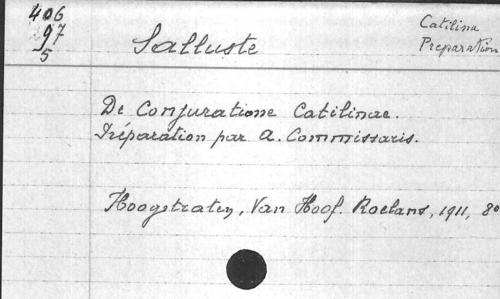 406
97
5
Salluste
Catilina
Preparation
De Conjuratione Catilinae.
Préparation par A. Commissaris.
Hoogstraten, Van Hoof. Roelans, 1911, 80